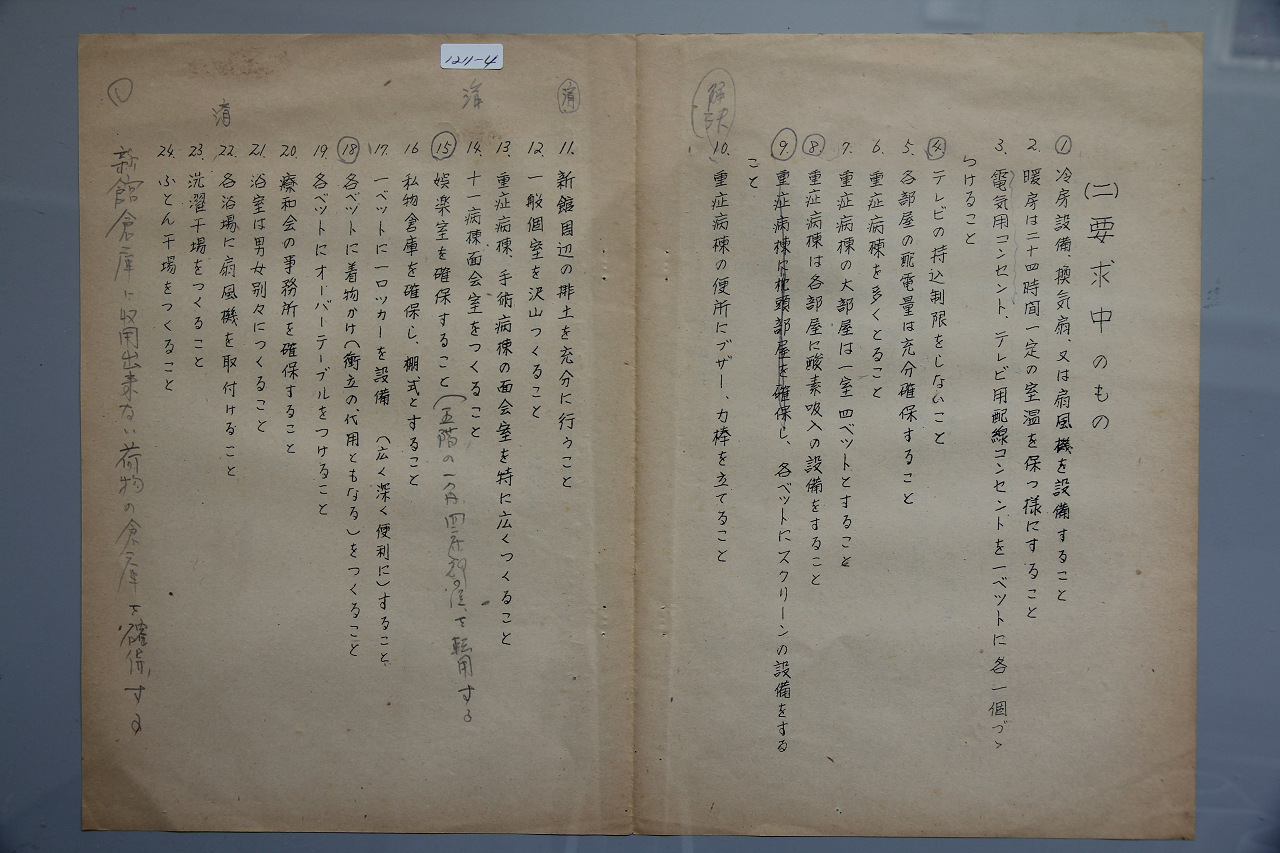 1211-4
(二)要求中のもの
1. 冷房設備、換気扇、又は扇風機を設備すること
2. 暖房は二十四時間一定の室温を保つ様にすること
3. 電気用コンセント、テレビ用配線コンセントを一ベットに各一個づゝ
らけること
4. テレビの持込制限をしないこと
5. 各部屋の配電量は充分確保すること
6. 重症病棟を多くとること
7. 重症病棟の大部屋は一室四ベットとすること
8. 重症病棟は各部屋に酸素吸入の設備をすること
9. 重症病棟に枕頭部屋を確保し、各ベットにスクリーンの設備をする
こと
解決
10. 重症病棟の便所にブザー、力棒を立てること
済
11. 新館周辺の排土を充分に行うこと
12. 一般個室を沢山つくること
13. 重症病棟、手術病棟の面会室を特に広くつくること
済
14. 十一病棟面会室をつくること
15. 娯楽室を確保すること(五階の一角、四を転用する
16. 私物倉庫を確保し、棚式とすること
17. 一ベットに一ロッカーを設備(広く深く便利に)すること
18. 各ベットに着物かけ(衝立の代用ともなる)をつくること
19. 各ベットにオーバーテーブルをつけること
20. 療和会の事務所を確保すること
21. 浴室は男女別々につくること
済
22. 各浴場に扇風機を取付けること
23. 洗濯干場をつくること
24. ふとん干場をつくること
新館倉庫に収用出来ない荷物の倉庫を確保する